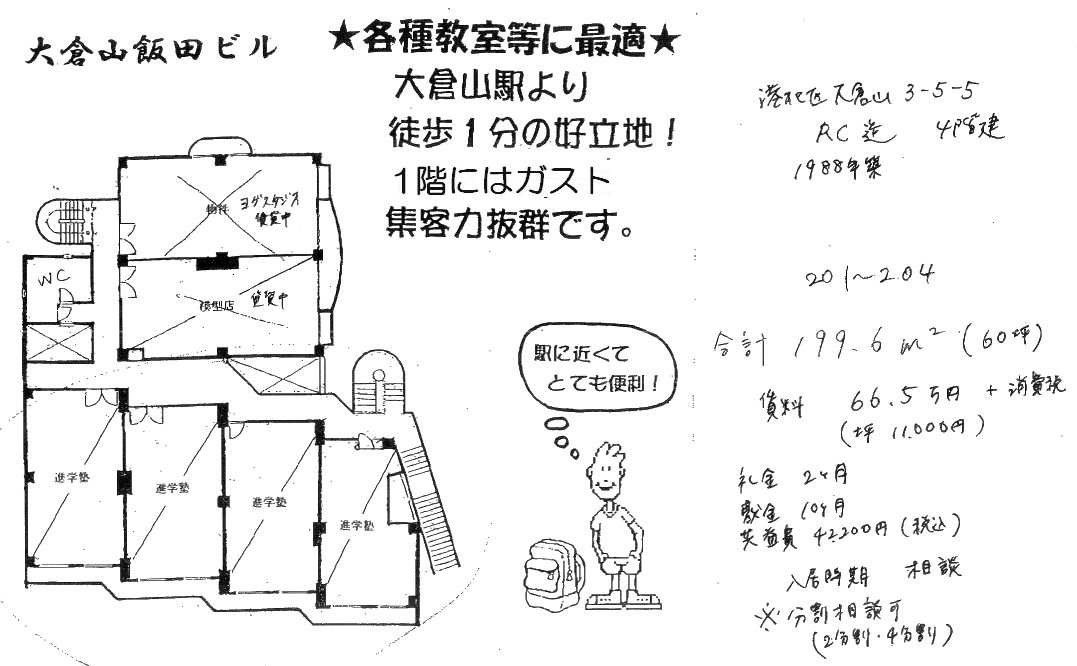 大倉山飯田ビル
★各種教室等に最適★
大倉山駅より
徒歩1分の好立地！
1階にはガスト
集客力抜群です。
港北区大倉山 3-5-5
RC造 4階建
1988年築
物件
ヨガスタジオ
賃貸中
WC
模型店
賃貸中
201〜204
合計 199.6m²(60坪)
賃料 66.5万円 + 消費税
(坪 11,000円)
駅に近くて
とても便利！
進学塾
進学塾
進学塾
進学塾
礼金 2ヶ月
敷金 10ヶ月
共益費 42,200円(税込)
入居時期 相談
※分割相談可
(2分割・4分割)